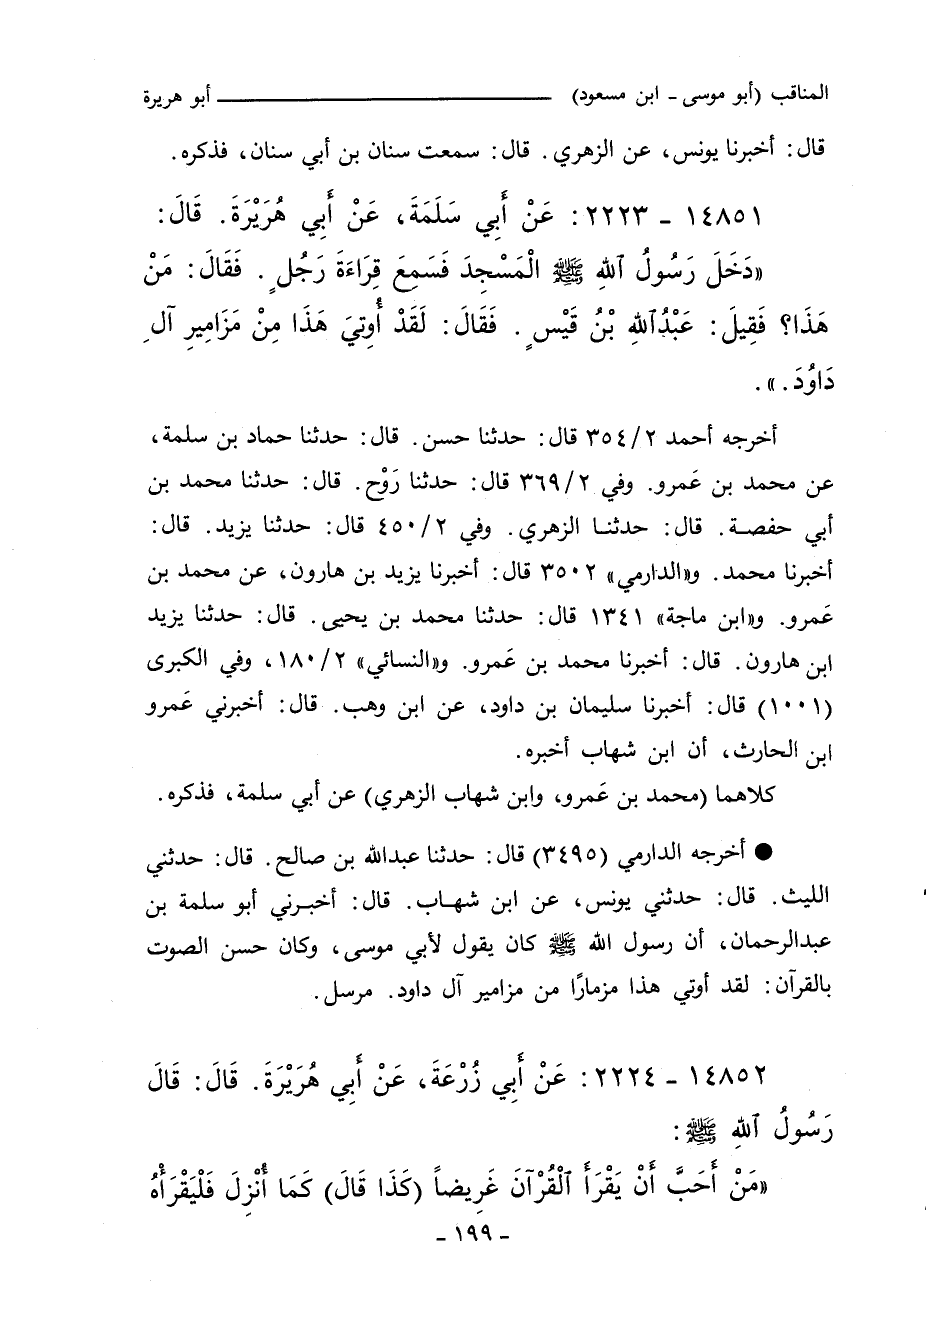 المناقب (أبو موسى - ابن مسعود) ـــــــــــــــــ أبو هريرة
قال: أخبرنا يونس، عن الزهري. قال: سمعت سنان بن أبي سنان، فذكره.
١٤٨٥١ - ٢٢٢٣: عَنْ أَبِي سَلَمَةَ، عَنْ أَبِي هُرَيْرَةَ. قَالَ:
«دَخَلَ رَسُولُ ٱللهِ ﷺ الْمَسْجِدَ فَسَمِعَ قِرَاءَةَ رَجُلٍ. فَقَالَ: مَنْ
هَذَا؟ فَقِيلَ: عَبْدُٱللهِ بْنُ قَيْسٍ. فَقَالَ: لَقَدْ أُوتِيَ هَذَا مِنْ مَزَامِيرِ آلِ
دَاوُدَ.».
أخرجه أحمد ٣٥٤/٢ قال: حدثنا حسن. قال: حدثنا حماد بن سلمة،
عن محمد بن عَمرو. وفي ٣٦٩/٢ قال: حدثنا رَوْح. قال: حدثنا محمد بن
أبي حفصة. قال: حدثنا الزهري. وفي ٤٥٠/٢ قال: حدثنا يزيد. قال:
أخبرنا محمد. و«الدارمي» ٣٥٠٢ قال: أخبرنا يزيد بن هارون، عن محمد بن
عَمرو. و«ابن ماجة» ١٣٤١ قال: حدثنا محمد بن يحيى. قال: حدثنا يزيد
ابن هارون. قال: أخبرنا محمد بن عَمرو. و«النسائي» ١٨٠/٢، وفي الكبرى
(١٠٠١) قال: أخبرنا سليمان بن داود، عن ابن وهب. قال: أخبرني عَمرو
ابن الحارث، أن ابن شهاب أخبره.
كلاهما (محمد بن عَمرو، وابن شهاب الزهري) عن أبي سلمة، فذكره.
● أخرجه الدارمي (٣٤٩٥) قال: حدثنا عبدالله بن صالح. قال: حدثني
الليث. قال: حدثني يونس، عن ابن شهاب. قال: أخبرني أبو سلمة بن
عبدالرحمان، أن رسول الله ﷺ كان يقول لأبي موسى، وكان حسن الصوت
بالقرآن: لقد أوتي هذا مزمارًا من مزامير آل داود. مرسل.
١٤٨٥٢ - ٢٢٢٤: عَنْ أَبِي زُرْعَةَ، عَنْ أَبِي هُرَيْرَةَ. قَالَ: قَالَ
رَسُولُ ٱللهِ ﷺ:
«مَنْ أَحَبَّ أَنْ يَقْرَأَ ٱلْقُرْآنَ غَرِيضاً (كَذَا قَالَ) كَمَا أُنْزِلَ فَلْيَقْرَأْهُ
- ١٩٩ -